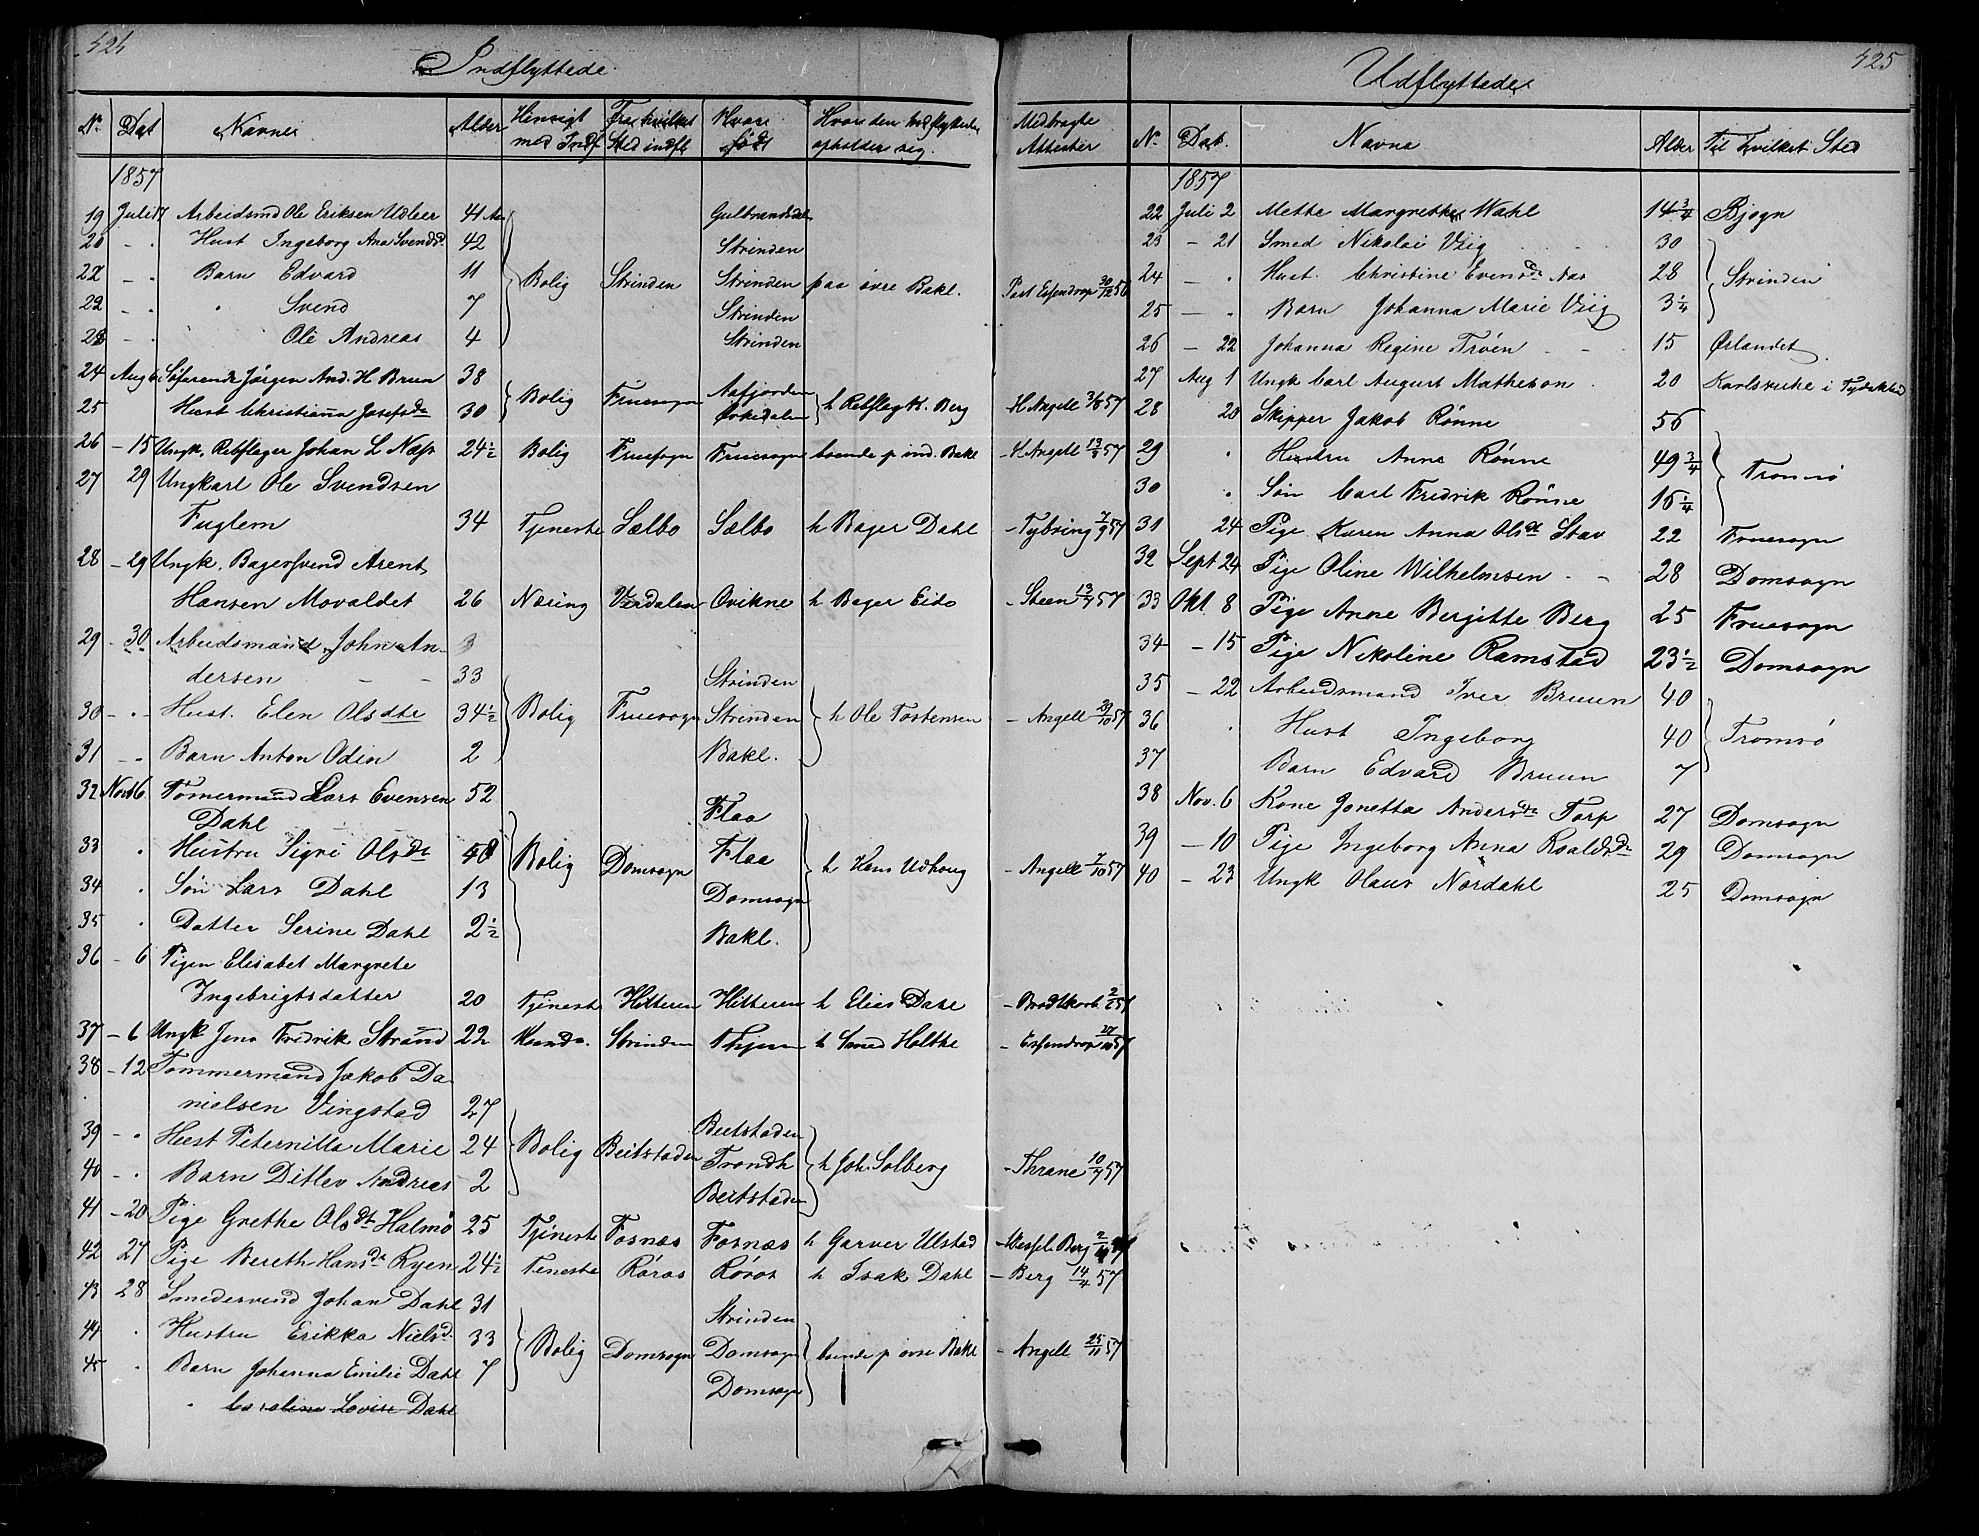 424
Indflyttede
No Dat Navne Alder Hensigt med Indf. Fra hvilket Sted indfl. Hvor født Hvor den Indflyttede opholder sig. Medbragte Attester
1857
19 Juli 17 Arbeidsmd Ole Eriksen Udleer 41 Aar Gulbrandsdal
20 - - Hust Ingeborg Ana Svendsd. 42 Strinden
22 - - Barn Edvard 11 Bolig Strinden Strinden paa övre Bakl. Past Essendrop 30/12 56
22 - - " Svend 7 Strinden
23 - - Ole Andreas 4 Strinden
24 Aug 6 Söfarende Jörgen And. H Brun 38 Bolig Fruesogn Aafjorden h Rebslag K. Berg - H Angell 3/8 57
25 Hust Christianna Josefsdr 30 Örkedalen
26 - 15 Ungk. Rebslager Johan L Næss 24 1/2 Bolig Fruesogn Fruesogn boende p ind. Bakl - H Angell 13/8 57
27 29 Ungkarl Ole Svendsen
Fuglem 34 Tjeneste Sælbo Sælbo h Bager Dahl - Tybring 7/9 57
28 - 29 Ungk. Bagersvend Arent
Hansen Movaldet 26 Næring Værdalen Qvikne h Bager Eide - Steen 13/7 57
29 - 30 Arbeidsmand John An- 3
dersen - - 33 Strinden
30 - " - Hust. Elen Olsdtr 34 1/2 Bolig Fruesogn Strinden h Ole Tostensen - Angell 29/10 57
31 - " Barn Anton Odin 2 Bakl.
32 Novb 6 Tömermand Lars Evensen 52
Dahl Flaa
33 " Hustru Sigri Olsdr 48 Bolig Domsogn Flaa h Hans Udhoug - Angell 7/10 57
34 " Sön Lars Dahl 13 Domsogn
35 " Datter Serine Dahl 2 1/2 Bakl.
36 - 6 Pigen Elisabet Margrete
Ingebrigtsdatter 20 Tjeneste Hitteren Hitteren h Elias Dahl - Brodtkorb 2/ 57
37 - 6 Ungk Jens Fredrik Strand 22 Strinden h Smed Holthe - Essendrop 57
38 - 12 Tömmermand Jakob Da-
nielsen Vingstad 27 Beitstaden
39 - " Hust Peternilla Marie 24 Bolig Beitstaden Trondh h Joh. Solberg - Thrane 10/7 57
40 - " Barn Ditlev Andreas 2 Beitstaden
41 - 20 Pige Grethe Olsdtr Halmö 25 Tjeneste Fosnæs Fosnæs h Garver Ulstad - Wessel Berg
42 27 Pige Bereth Hansdr Ryen 24 1/2 Teneste Röraas Röros h Isak Dahl - Berg 14/4 57
43 28 Smedesvend Johan Dahl 31 Strinden
44 " Hustru Erikka Nielsd. 33 Bolig Domsogn Domsogn boende p övre Bakl - Angell 25/11 57
45 " Barn Johanna Emilie Dahl 7 Domsogn
" Caroline Lovise Dahl
425
Udflyttede
No. Dat. Navne Alder Til hvilket Sted
1857
22 Juli 2 Mette Margrethe Wahl 14 3/4 Bjugn
23 - 21 Smed Nikolai Viig 30
24 - " Hust. Christine Evensdr Aas 28 Strinden
25 - " Barn Johanna Marie Viig 3 1/4
26 - 22 Johanna Regine Tröen - - 15 Ørlandet
27 Aug 1 Ungk Carl August Matheson 20 Karlsruhe i Tydskland
28 20 Skipper Jakob Rönne 56
29 " Hustru Anne Rönne 49 3/4 Tromsö
30 " Sön Carl Fredrik Rönne 16 1/4
31 24 Pige Karen Anna Olsdt Stav 22 Fruesogn
32 Sept 24 Pige Oline Wilhelmsen - - 28 Domsogn
33 Okt. 8 Pige Anne Bergitte Berg 25 Fruesogn
34 - 15 Pige Nikoline Ramstad 23 1/2 Domsogn
35 - 22 Arbeidsmand Iver Bruun 40
36 " Hust Ingeborg 40 Tromsö
37 Barn Edvard Bruun 7
38 Nov. 6 Kone Jonetta Andersdr Torp 27 Domsogn
39 - 10 Pige Ingeborg Anna Roaldsdr 29 Domsogn
40 - 23 Ungk Olaus Nordahl 25 Domsogn